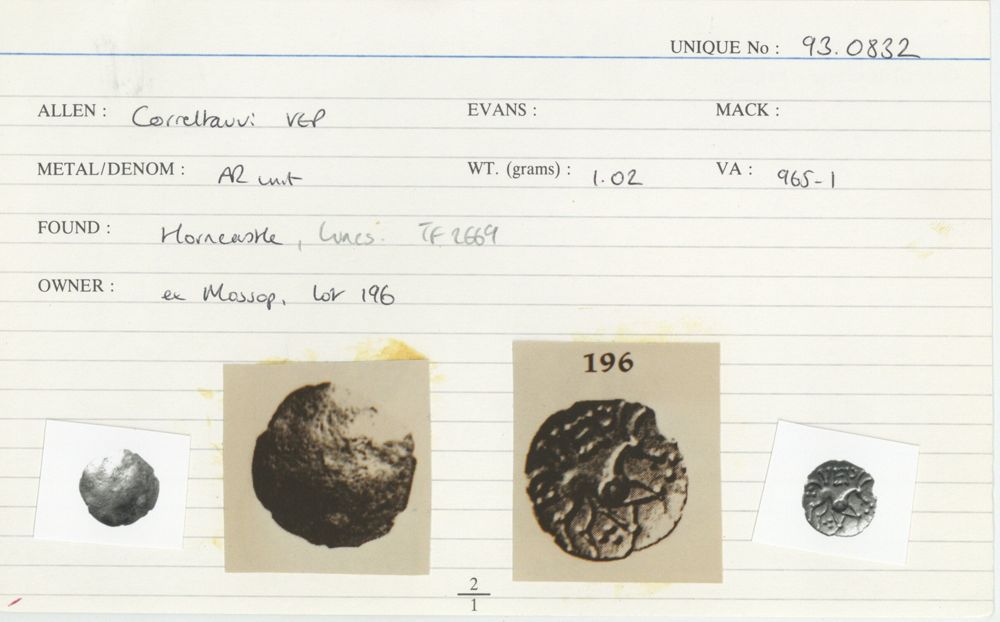 UNIQUE No : 93.0832
ALLEN : Correltauvi VEP EVANS : MACK :
METAL/DENOM : AR unit WT. (grams) : 1.02 VA : 965-1
FOUND : Horncastle, Lincs. TF 2669
OWNER : ex Mossop, lot 196
196
2
1